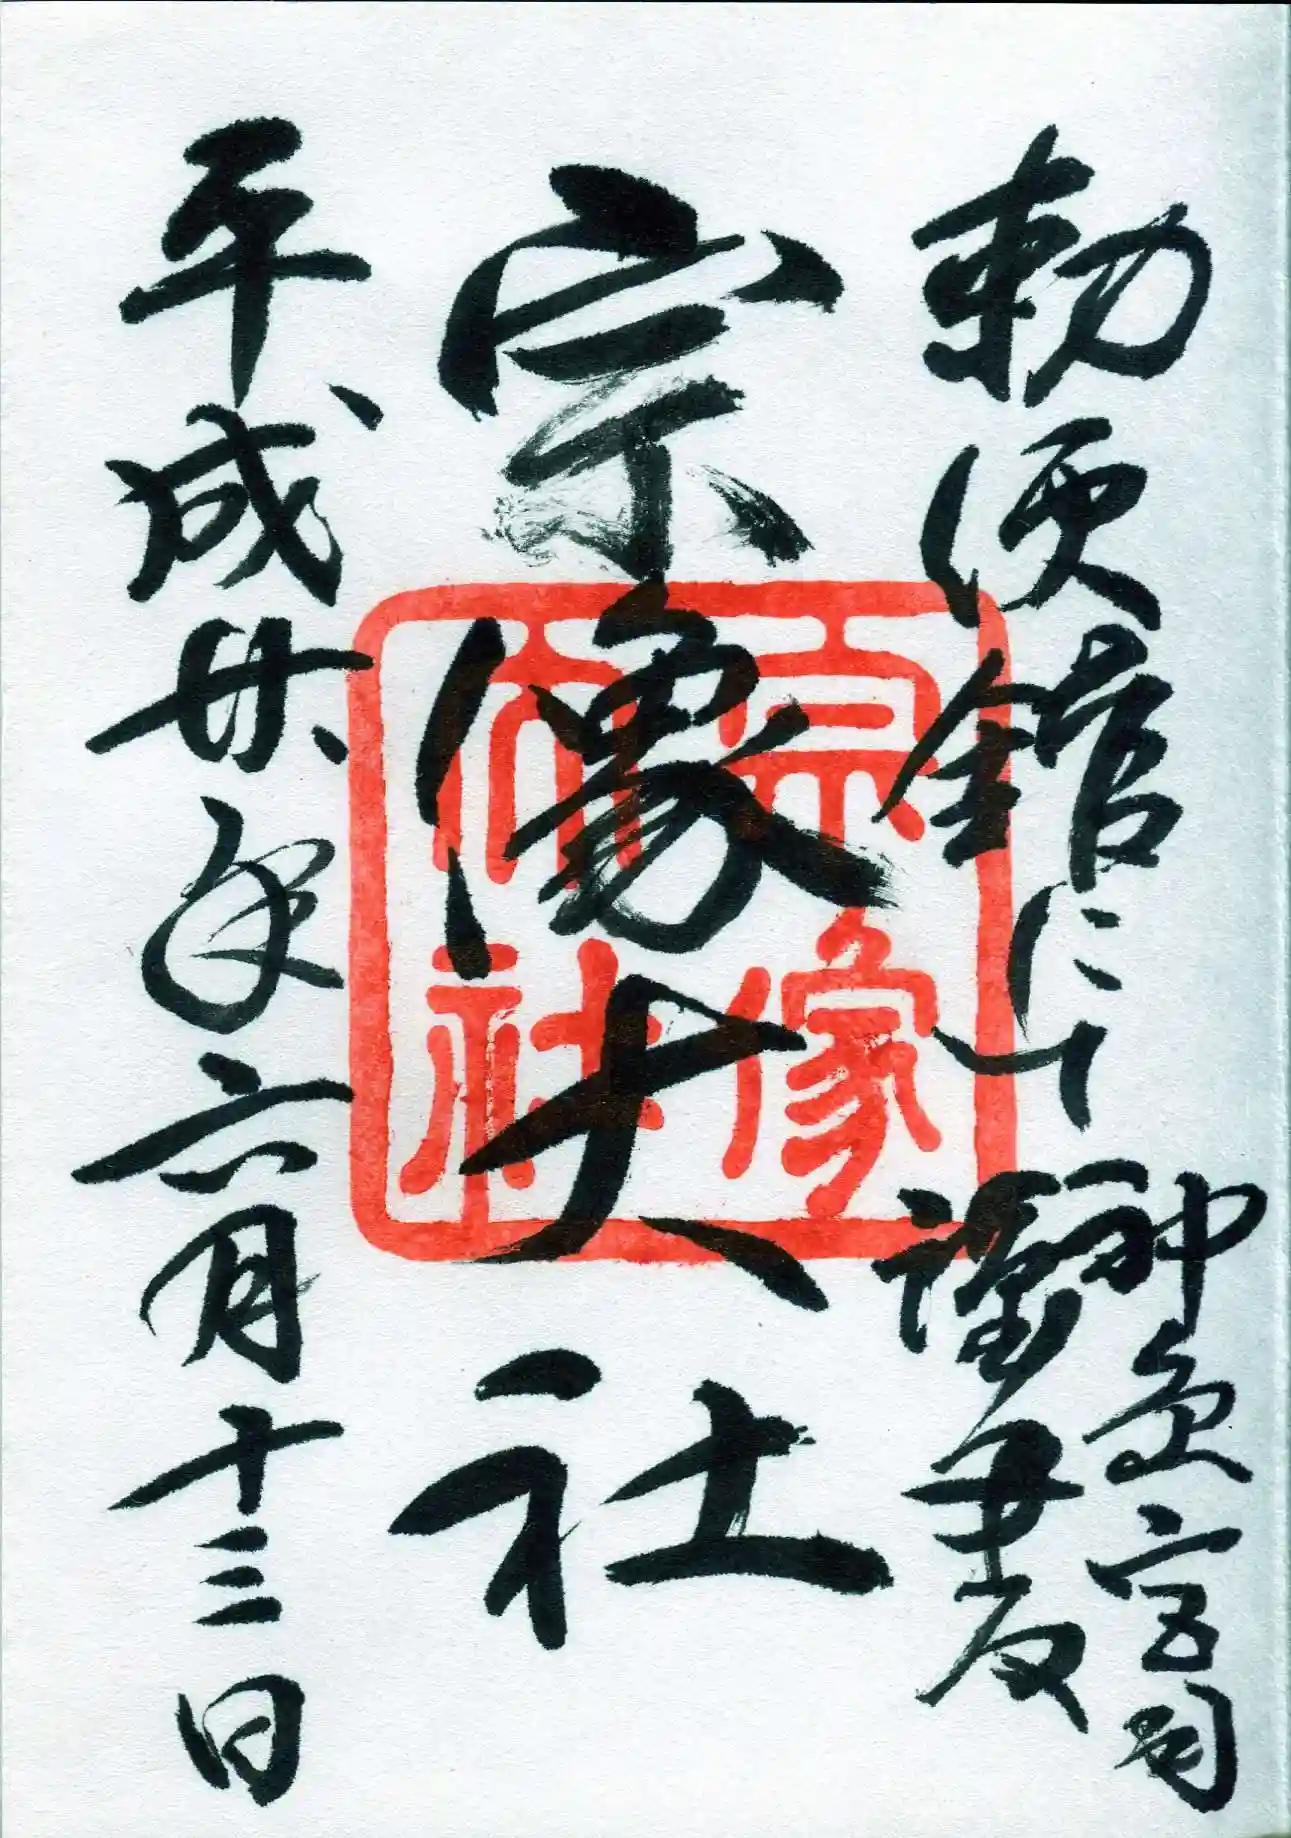 勅使館にて
神島宮司
謹書
宗像大社
宗像
大社
平成廿年六月十三日